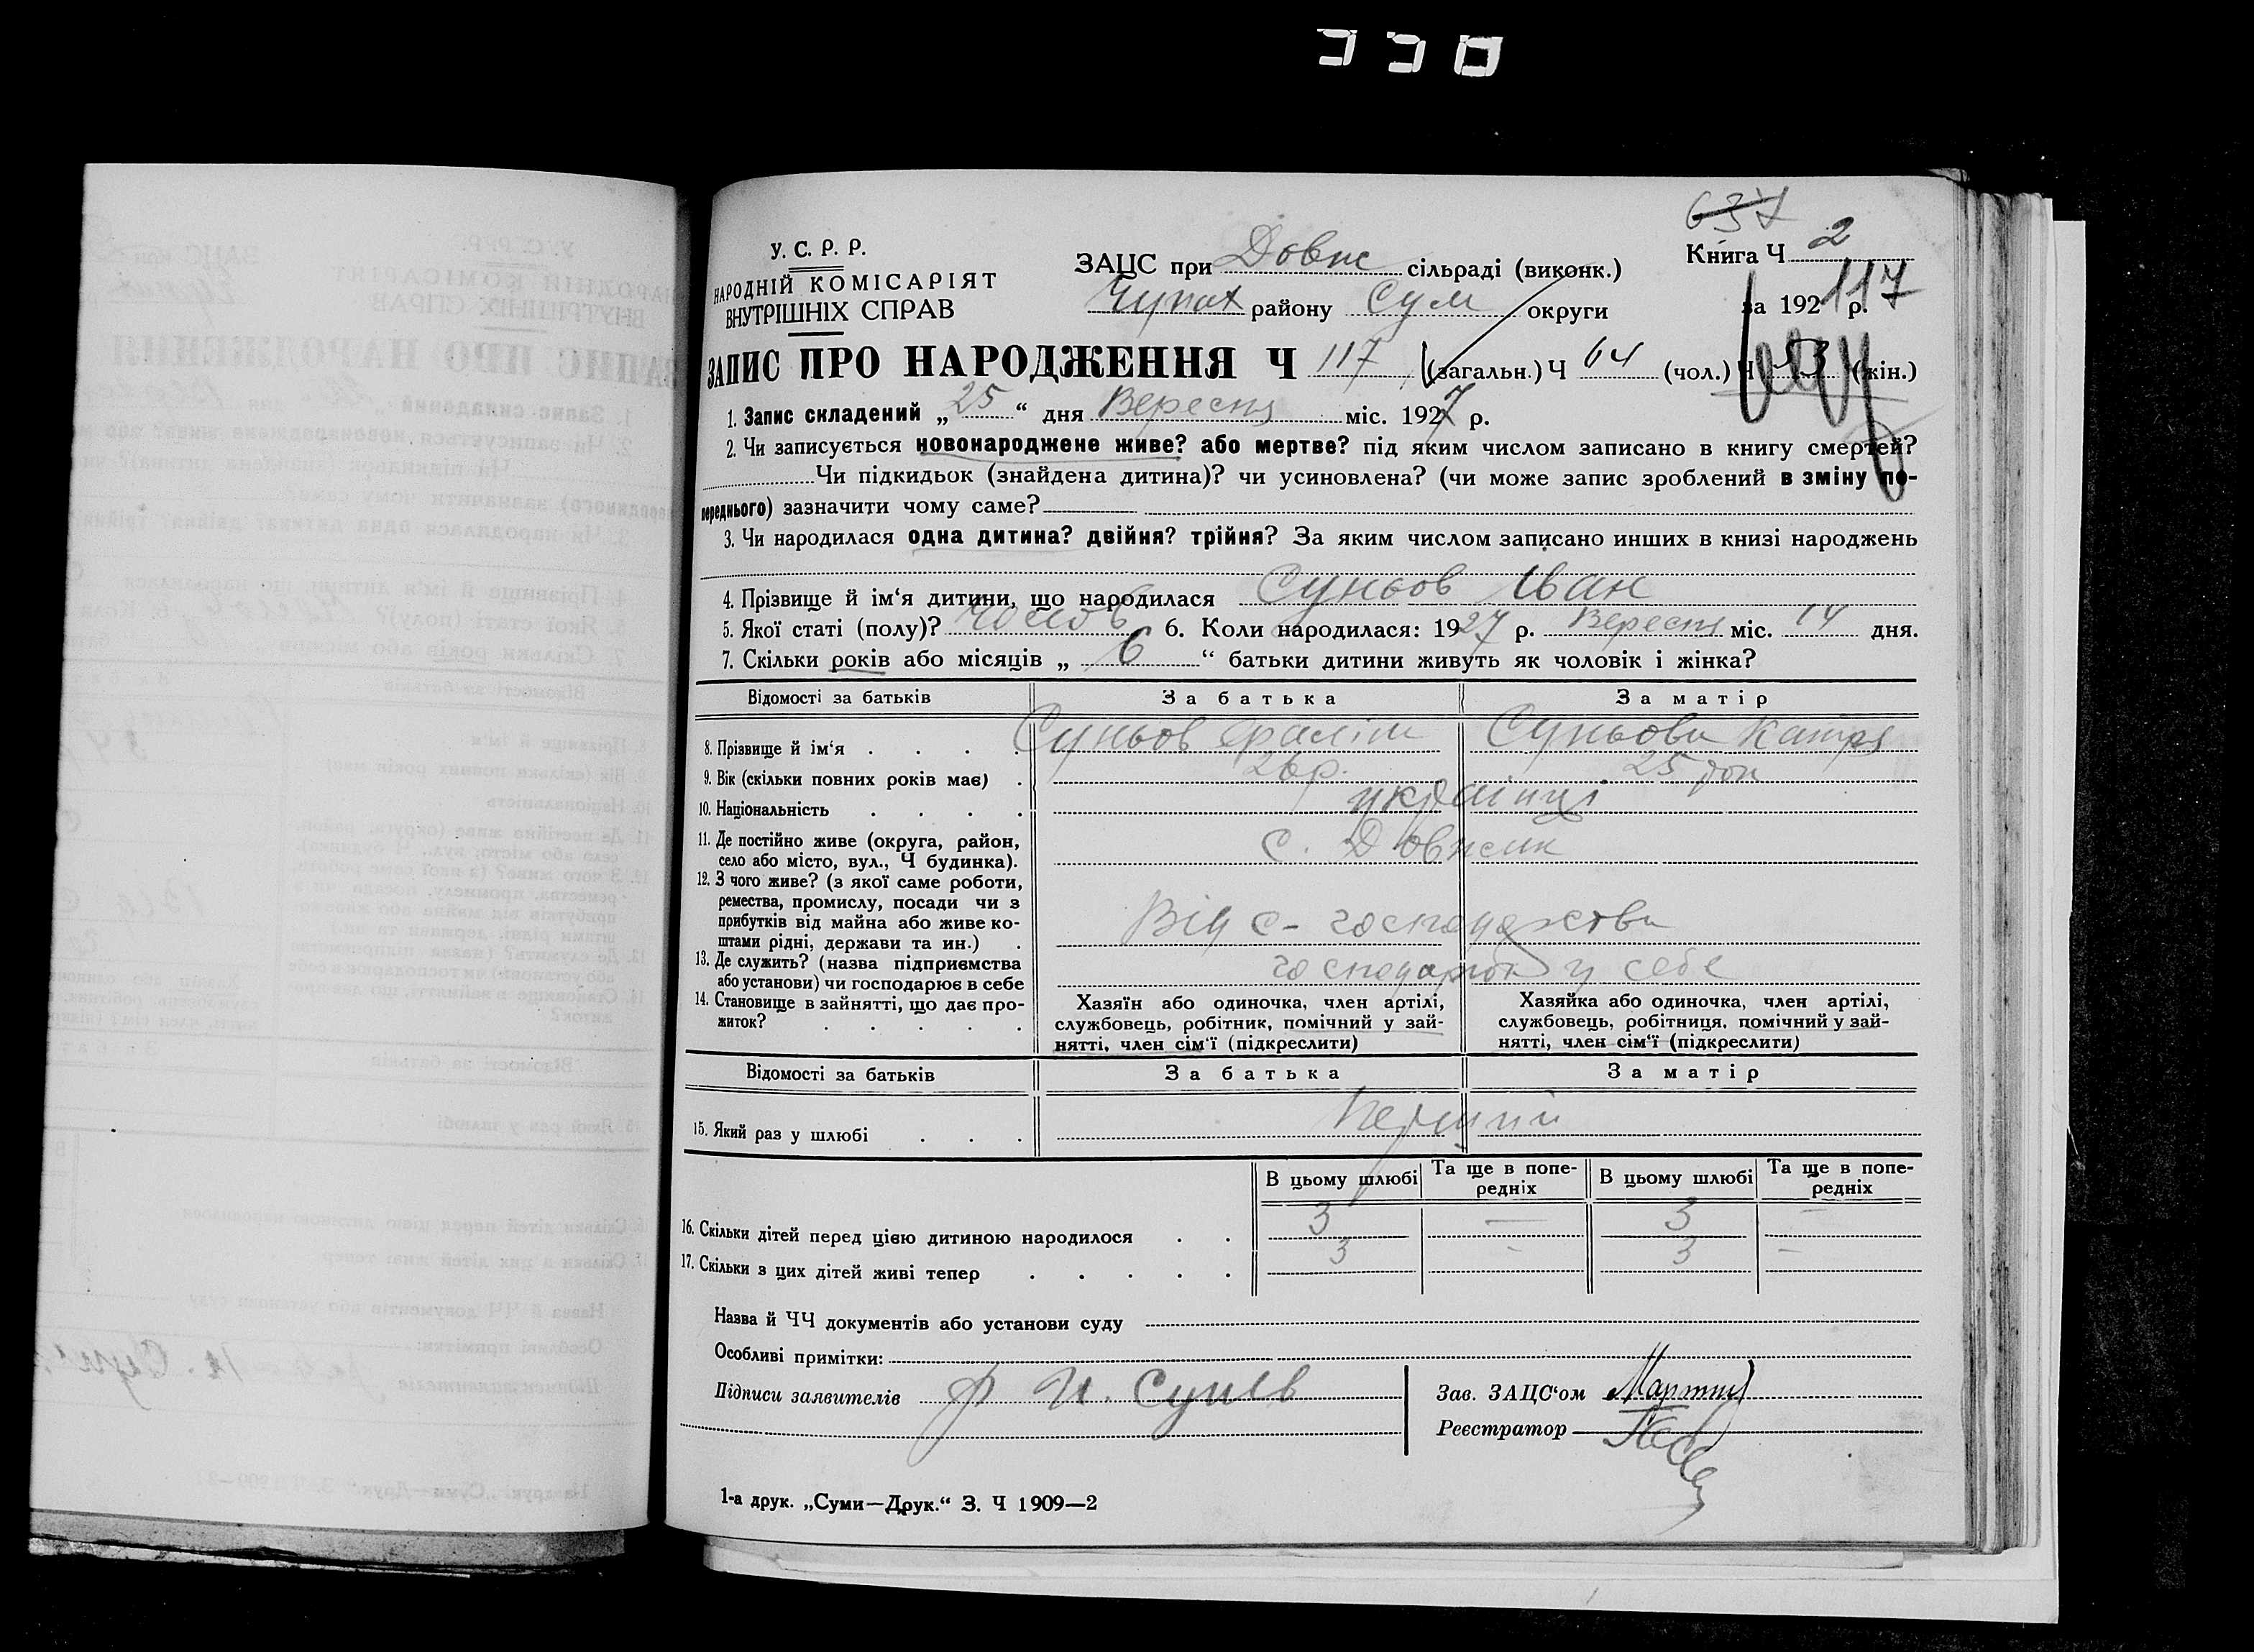 330
637
У. С. Р. Р.
НАРОДНІЙ КОМІСАРІЯТ
ВНУТРІШНІХ СПРАВ
ЗАЦС при Довж сільраді (виконк.)
Чупах району Сум округи
Книга Ч 2
за 192 р. 117
ЗАПИС ПРО НАРОДЖЕННЯ Ч 117 (загальн.) Ч 64 (чол.) Ч 53 (жін.)
1. Запис складений „ 25 “ дня Вересня міс. 1927 р.
2. Чи записується новонароджене живе? або мертве? під яким числом записано в книгу смертей?
Чи підкидьок (знайдена дитина)? чи усиновлена? (чи може запис зроблений в зміну по-
переднього) зазначити чому саме?
3. Чи народилася одна дитина? двійня? трійня? За яким числом записано инших в книзі народжень
4. Прізвище й ім'я дитини, що народилася Суньов Іван
5. Якої статі (полу)? чолов 6. Коли народилася: 1927 р. Вересня міс. 14 дня.
7. Скільки років або місяців „ 6 “ батьки дитини живуть як чоловік і жінка?
Відомості за батьків За батька За матір
8. Прізвище й ім'я . . . . Суньов Суньова Катря
9. Вік (скільки повних років має) . 26 р. 25 рок
10. Національність . . . . українці
11. Де постійно живе (округа, район,
село або місто, вул., Ч будинка). с. Довжик
12. З чого живе? (з якої саме роботи,
ремества, промислу, посади чи з
прибутків від майна або живе ко-
штами рідні, держави та ин.) . Від с-господарства
13. Де служить? (назва підприємства
або установи) чи господарює в себе у себе
14. Становище в зайнятті, що дає про-
житок? . . . . .
Хазяїн або одиночка, член артілі,
службовець, робітник, помічний у зай-
нятті, член сім'ї (підкреслити)
Хазяйка або одиночка, член артілі,
службовець, робітниця, помічний у зай-
нятті, член сім'ї (підкреслити)
Відомості за батьків За батька За матір
15. Який раз у шлюбі . . . Перший
В цьому шлюбі Та ще в попе-
редніх В цьому шлюбі Та ще в попе-
редніх
16. Скільки дітей перед цією дитиною народилося . . 3 — 3 —
17. Скільки з цих дітей живі тепер . . . . . 3 - 3 —
Назва й ЧЧ документів або установи суду
Особливі примітки:
Підписи заявителів
Зав. ЗАЦС'ом
Реєстратор
1-а друк. „Суми—Друк.“ З. Ч 1909—2